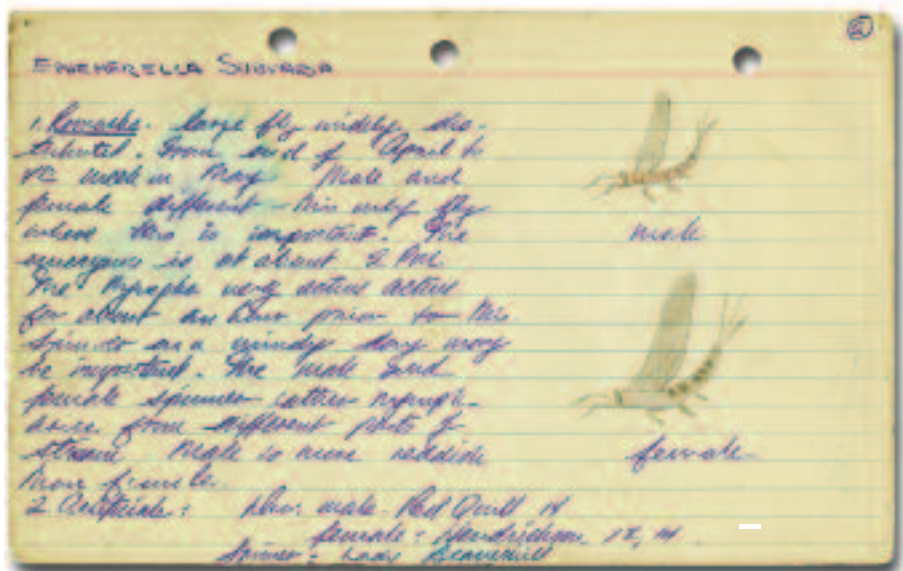 5
EPHEMERELLA SUBVARIA
1. Remarks. large fly widely dis-
tributed. From end of April to
week in May. Male and
female different this only fly
where this is important. The
emergence is at about 2 PM.
The Nymphs very active active
for about an hour prior to this
Spinner on a windy day may
be important. The male and
female spinner rather nymph-
from different parts of
stream Male is more reddish
than female.
2 Artificials: Dun: male. Red Quill 14
female: Hendrickson 12, 14
Spinner: Lady Beaverkill
male
female